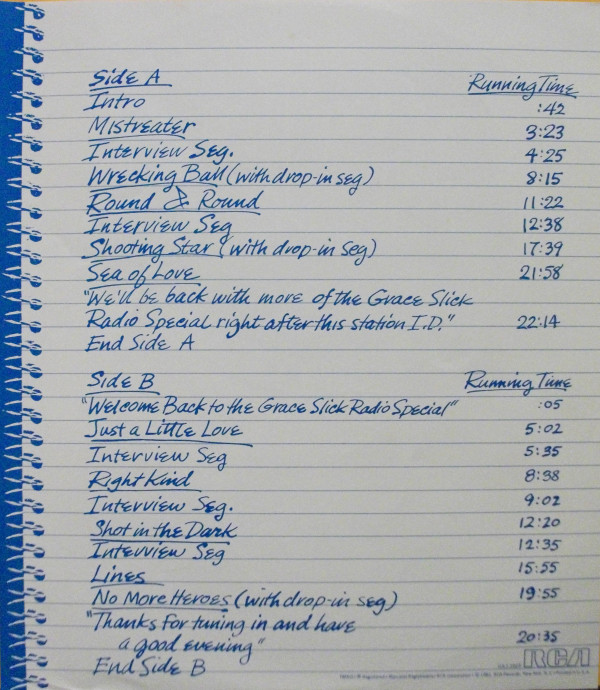 Side A Running Time
Intro :42
Mistreater 3:23
Interview Seg. 4:25
Wrecking Ball (with drop-in seg) 8:15
Round & Round 11:22
Interview Seg 12:38
Shooting Star (with drop-in seg) 17:39
Sea of Love 21:58
"We'll be back with more of the Grace Slick
Radio Special right after this station I.D." 22:14
End Side A
Side B Running Time
"Welcome Back to the Grace Slick Radio Special" :05
Just a Little Love 5:02
Interview Seg 5:35
Right Kind 8:38
Interview Seg. 9:02
Shot in the Dark 12:20
Interview Seg 12:35
Lines 15:55
No More Heroes (with drop-in seg) 19:55
"Thanks for tuning in and have
a good evening" 20:35
End Side B
RCA